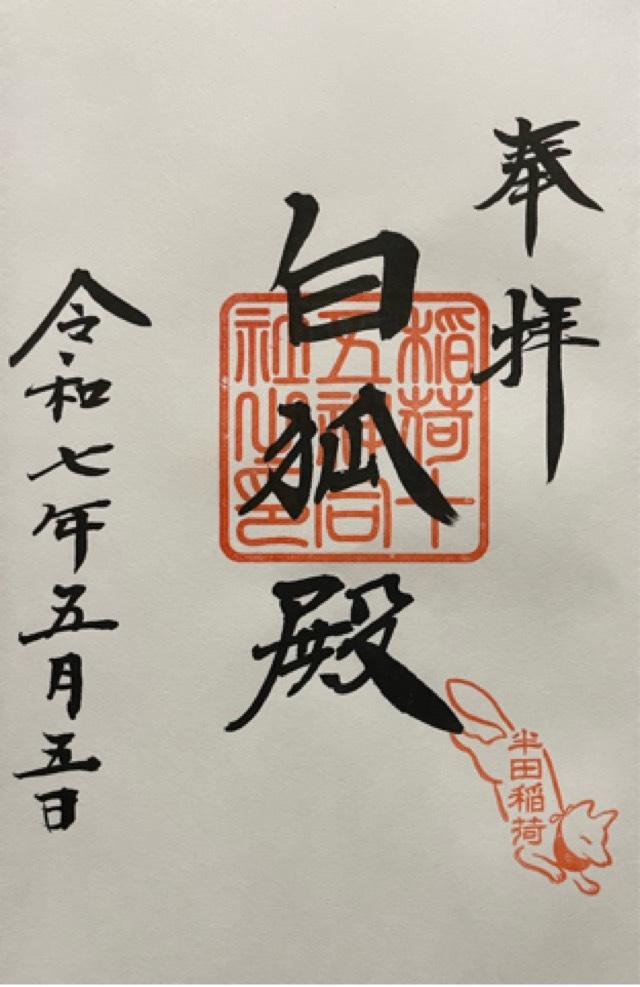 奉拝
白狐殿
稲荷十
五神合
社之印
半田稲荷
令和七年五月五日